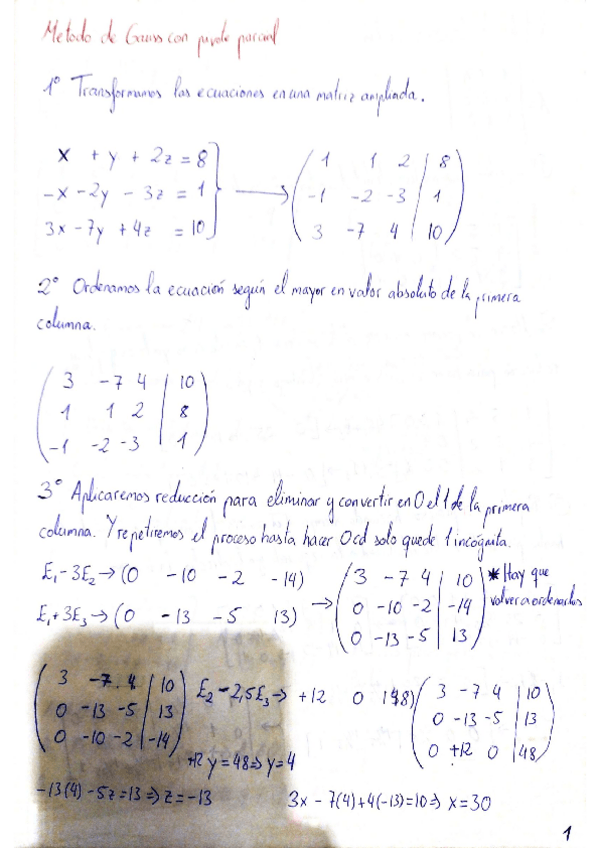 Metodo de Gauss con pivote parcial
1º Transformamos las ecuaciones en una matriz ampliada.
x + y + 2z = 8 | 1 1 2 | 8
-x - 2y - 3z = 1 → -1 -2 -3 | 1
3x - 7y + 4z = 10 | 3 -7 4 | 10
2º Ordenamos la ecuación según el mayor en valor absoluto de la primera
columna.
3 -7 4 | 10
1 1 2 | 8
-1 -2 -3 | 1
3º Aplicaremos reducción para eliminar y convertir en 0 el 1 de la primera
columna. Y repetiremos el proceso hasta hacer 0 cd solo quede 1 incógnita.
E₁-3E₂→(0 -10 -2 -14)
E₁+3E₃→(0 -13 -5 13)
→ 3 -7 4 | 10
0 -10 -2 | -14
0 -13 -5 | 13
* Hay que
volver a ordenarlos
3 -7 4 | 10
0 -13 -5 | 13
0 -10 -2 | -14
E₂-2,5E₃→ +12 0 48)
3 -7 4 | 10
0 -13 -5 | 13
0 +12 0 | 48
+12 y = 48 ⇒ y = 4
-13(4) - 5z = 13 ⇒ z = -13
3x - 7(4) + 4(-13) = 10 ⇒ x = 30
1